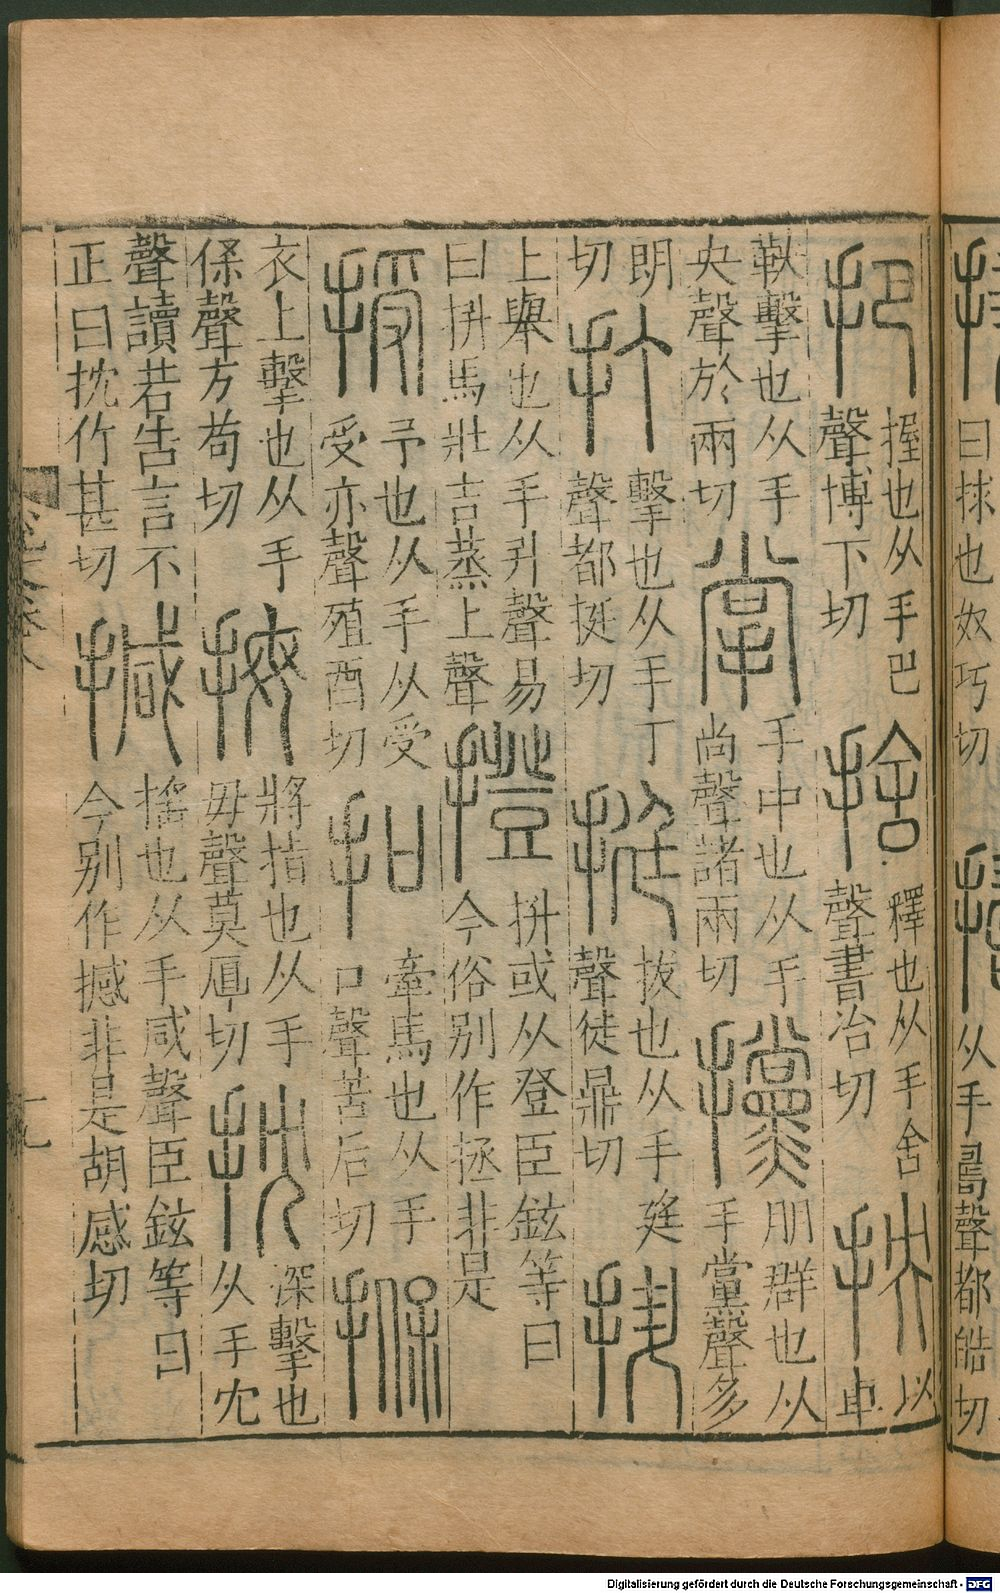 曰捄也奴巧切
从手𠷎聲都皓切
把 握也从手巴聲博下切 捨 釋也从手舍聲書冶切 抰 以車
鞅擊也从手央聲於兩切 掌 手中也从手尚聲諸兩切 攩 朋群也从手黨聲多
朗切 打 擊也从手丁聲都挺切 挺 拔也从手廷聲徒鼎切 抍
上舉也从手升聲易曰抍馬壯吉蒸上聲 撜 抍或从登臣鉉等曰今俗别作拯非是
授 予也从手从受受亦聲殖酉切 扣 牽馬也从手口聲苦后切 㨐
衣上擊也从手保聲方苟切 拇 將指也从手毋聲莫厚切 抌 深擊也从手冘
聲讀若告言不正曰抌竹甚切 㨔 摇也从手咸聲臣鉉等曰今别作撼非是胡感切
十九
Digitalisierung gefördert durch die Deutsche Forschungsgemeinschaft - DFG